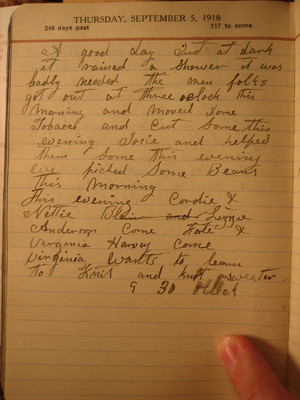 THURSDAY, SEPTEMBER 5, 1918
248 days past 117 to come
A good day Just at dark
it rained a shower it was
badly needed the men folks
got out at three oclock this
morning and moved some
Tobacco and Cut Some this
evening Josie and helped
them Some this evening
we picked Some Beans
This Morning
This evening Cordie &
Nettie Blair and Lizzie
Anderson Come Kate &
Virginia Harvey Come
Virginia wants to learn
to Knit and knit a sweater
9 30 oclock